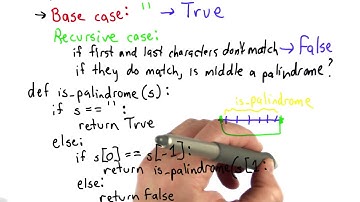 → Base case: '' → True
Recursive case:
if first and last characters don't match → False
if they do match, is middle a palindrome?
def is_palindrome(s):
is_palindrome
if s == '':
return True
else:
if s[0] == s[-1]:
return is_palindrome(s[1:
else:
return false